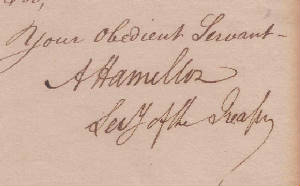 Your Obedient Servant
A Hamilton
Secy of the Treasy